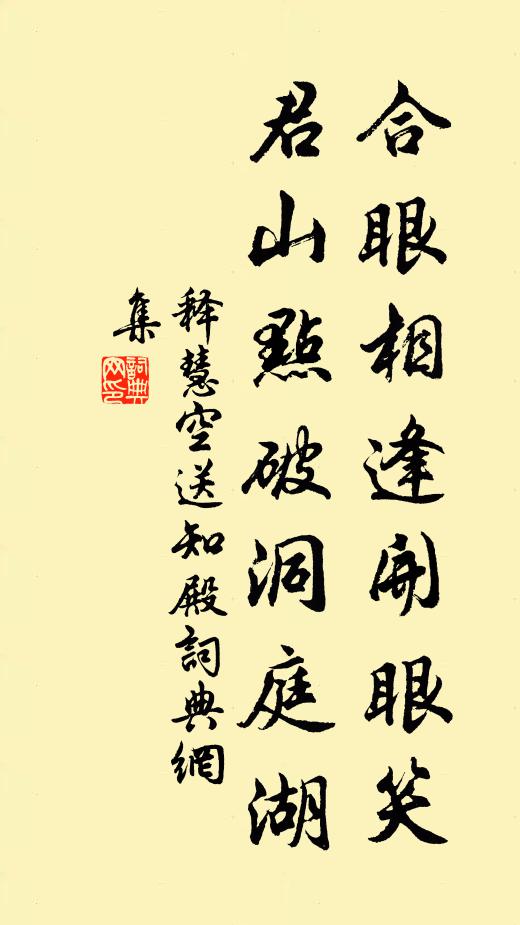 合眼相逢開眼笑
君山點破洞庭湖
释慧空送知殿詞典網
集
詞典
网印